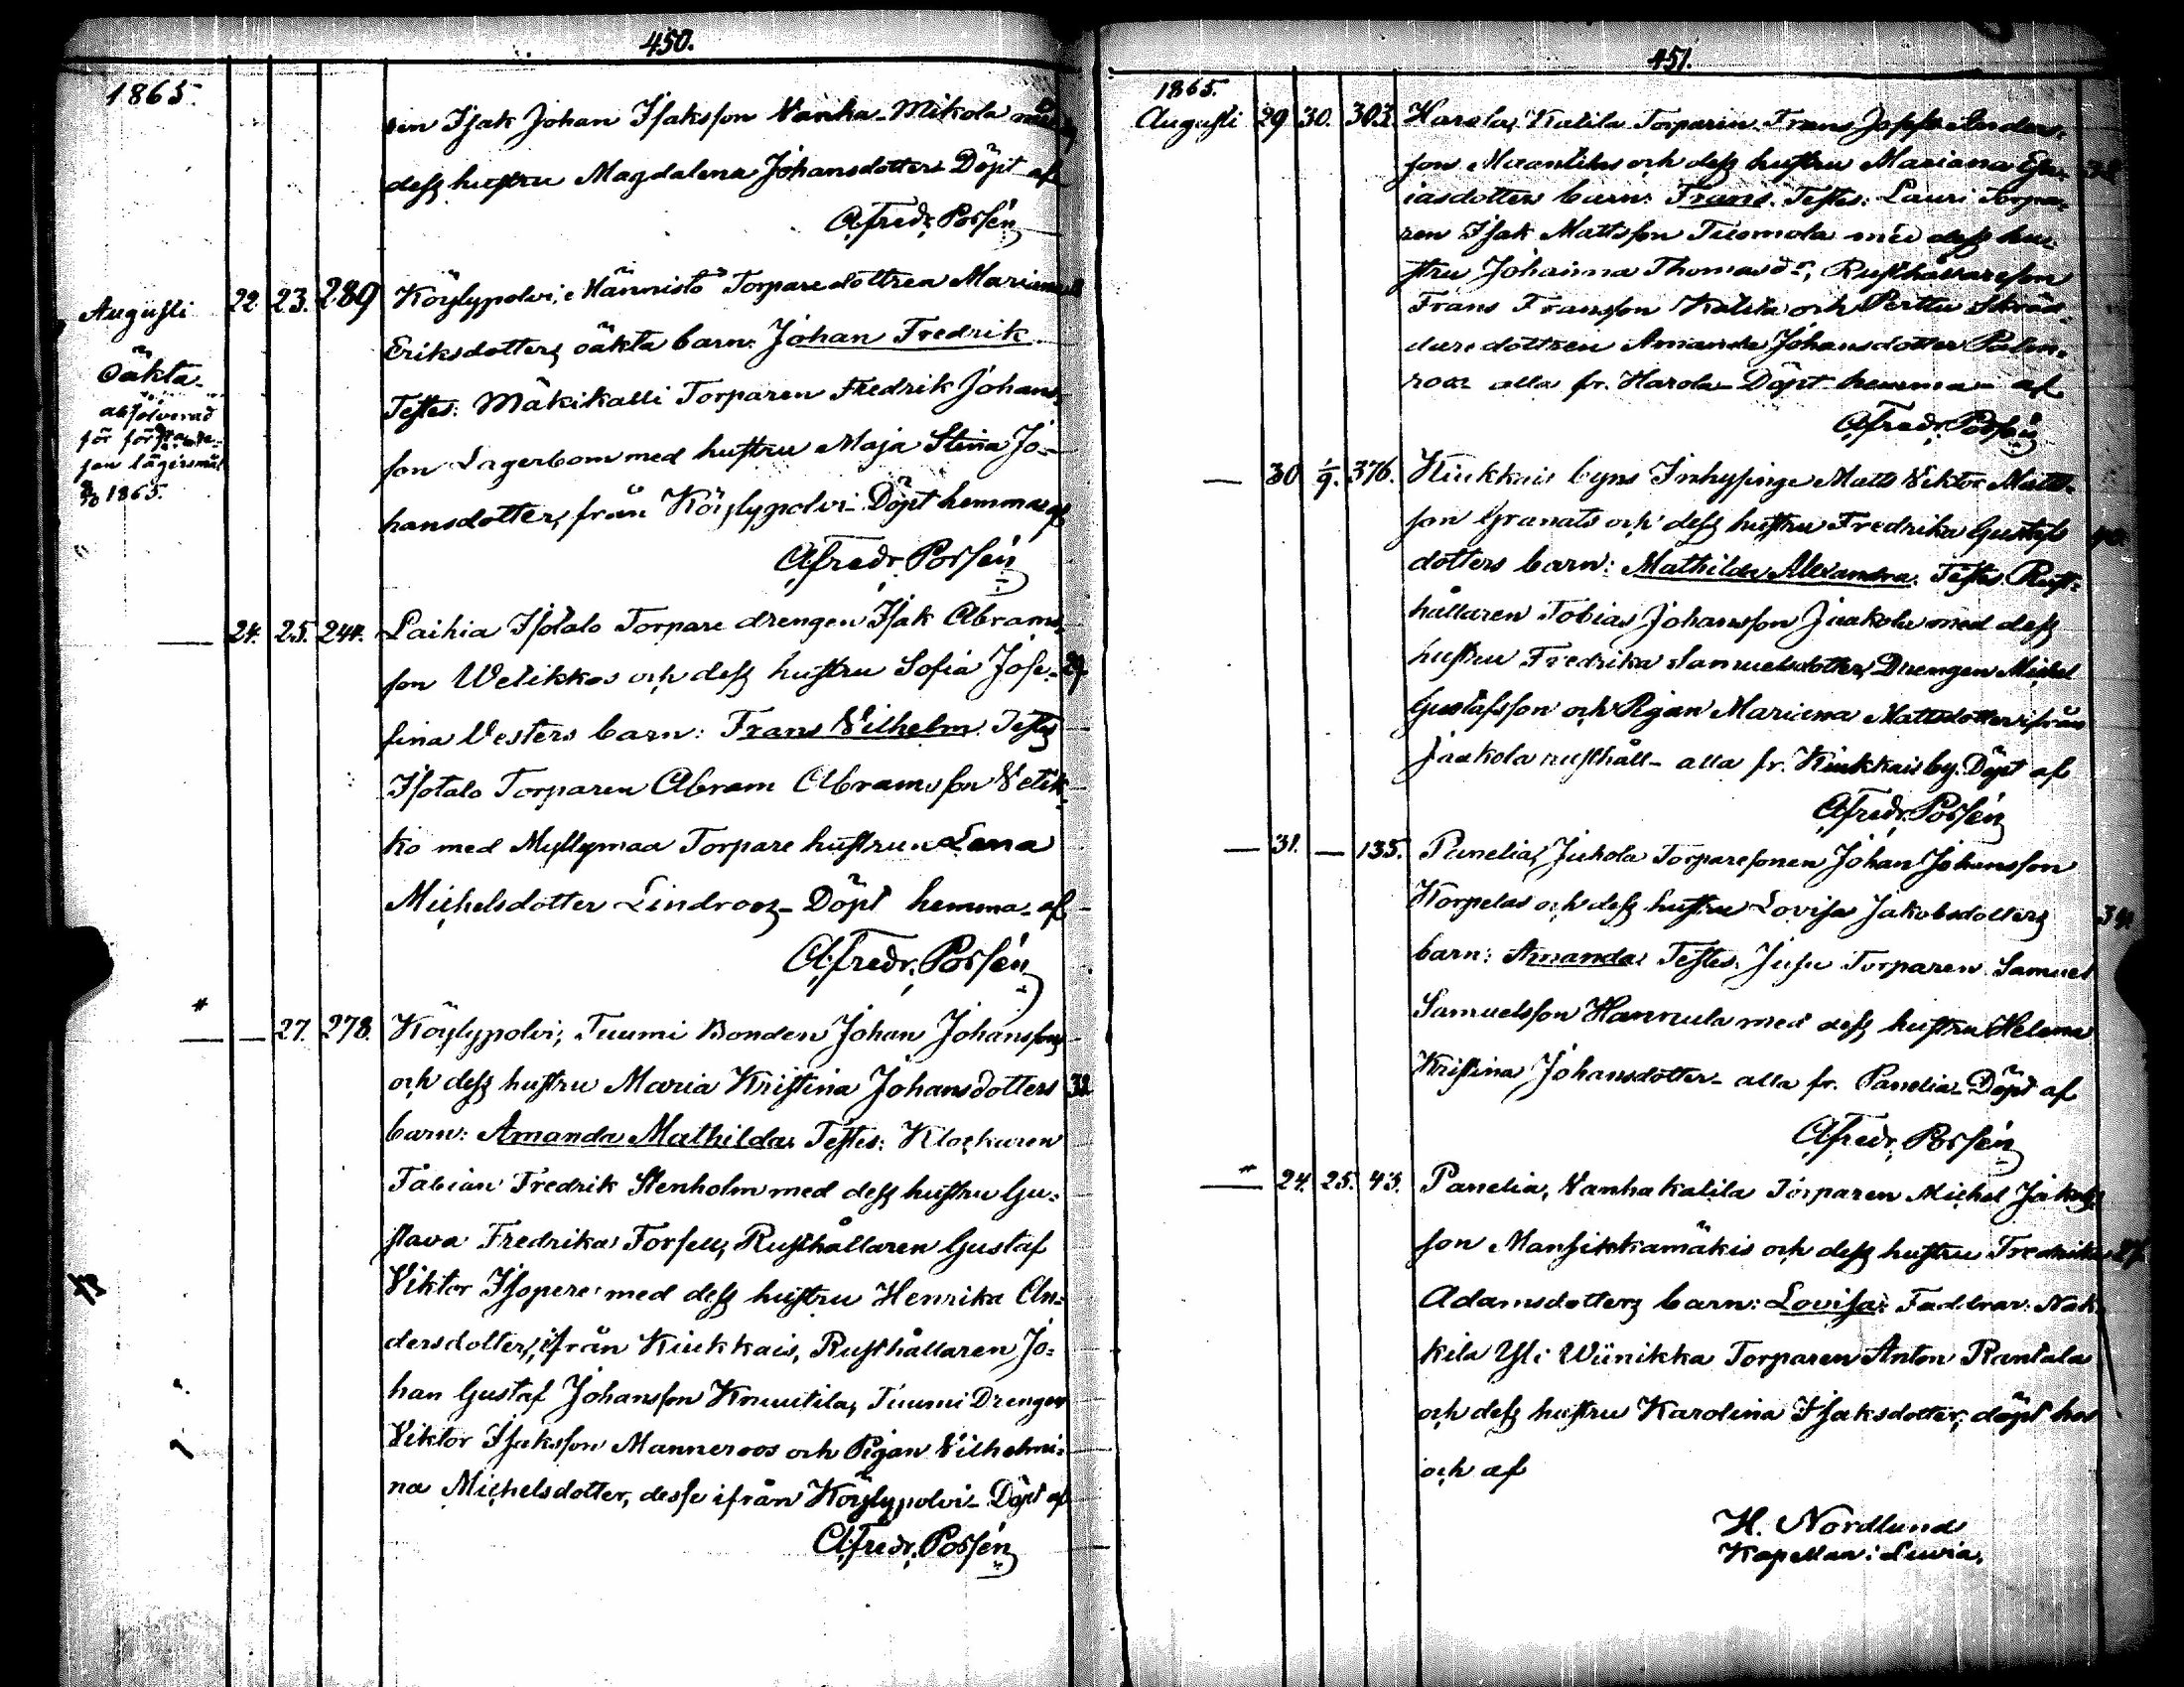 450.
1865.
ren Isak Johan Isaksson Vanha-Mikola med
dess hustru Magdalena Johansdotter Döpt af
A. Fredr. Possén
Augusti 22. 23. 289 Köylypolvi, Männistö Torparedottren Mariana
Eriksdotters oäkta barn: Johan Fredrik
Testes: Mäkikalli Torparen Fredrik Johans-
son Lagerbom med hustru Maja Stina Jo-
hansdotter, från Köylypolvi Döpt hemma af
A. Fredr. Possén
Oäkta
absolverad
för första re-
san lägersmål
1865.
24. 25. 244. Laihia Isotalo Torpare drengen Isak Abrams-
son Wetikkos och dess hustru Sofia Jose- 29.
fina Vesters barn: Frans Vilhelm Testes
Isotalo Torparen Abram Abramsson Vetik-
ko med Myllymaa Torpare hustrun Lena
Michelsdotter Lindroos Döpt hemma af
A. Fredr. Possén
— — 27. 278. Köylypolvi, Tuumi Bonden Johan Johanssons
och dess hustru Maria Kristina Johansdotters 32
barn: Amanda Mathilda. Testes: Klockaren
Fabian Fredrik Stenholm med dess hustru Gu-
stava Fredrika Forsell, Rusthållaren Gustaf
Viktor Isopere med dess hustru Henrika An-
dersdotter, ifrån Kiukkais, Rusthållaren Jo-
han Gustaf Johansson Knuutila, Tuumi Drengen
Viktor Isaksson Manneroos och Pigan Vilhelmi-
na Michelsdotter, desse ifrån Köylypolvi Döpt af
A. Fredr. Possén
451.
1865.
Augusti 29 30. 303. Harola, Katila Torparen Frans Josef Anders-
son Maantilas och dess hustru Mariana
iasdotters barn: Frans. Testes: Lauri Torpa-
ren Isak Mattsson Tuomola med dess hu-
stru Johanna Thomasdr, Rusthållaresson
Frans Fransson Katila och Perttu Skräd-
daredottren Amanda Johansdotter Palm-
roos alla fr. Harola Döpt hemma af
A. Fredr. Possén
— 30 1/9. 376. Kiukkais byns Inhysinge Matts Viktor Matts-
son Granats och dess hustru Fredrika Gustafs 40.
dotters barn: Mathilda Alexandra. Testes. Rust-
hållaren Tobias Johansson Jaakola med dess
hustru Fredrika Samuelsdotter, Drengen Michel
Gustafsson och Pigan Mariana Mattsdotter ifrån
Jaakola rusthåll alla fr. Kiukkais by. Döpt af
A. Fredr. Possén
— 31. — 135. Panelia, Juhola Torparesonen Johan Johansson
Korpelas och dess hustru Lovisa Jakobsdotters 34.
barn: Amanda. Testes. Jusu Torparen Samuel
Samuelsson Hannula med dess hustru Helena
Kristina Johansdotter alla fr. Panelia Döpt af
A. Fredr. Possén
— 24. 25. 43. Panelia, Vanhakatila Torparen Michel Jakobs-
son Mansikkamäkis och dess hustru Fredrika 27.
Adamsdotters barn: Lovisa. Faddrar: Nak-
kila Yli Wiinikka Torparen Anton Rantala
och dess hustru Karolina Isaksdotter, döpt hos
och af
H. Nordlund
Kapellan i Luvia.